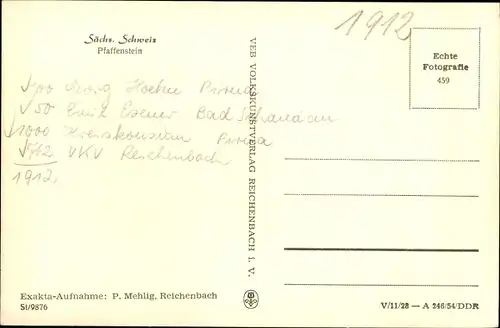 1912
Sächs. Schweiz
Pfaffenstein
Echte
Fotografie
459
Pirna
50 Emil Exner Bad Schandau
1000 Pirna
VKV Reichenbach
1912
VEB VOLKSKUNSTVERLAG REICHENBACH I. V.
Exakta-Aufnahme: P. Mehlig, Reichenbach
St/9876
V/11/28 — A 246/54/DDR